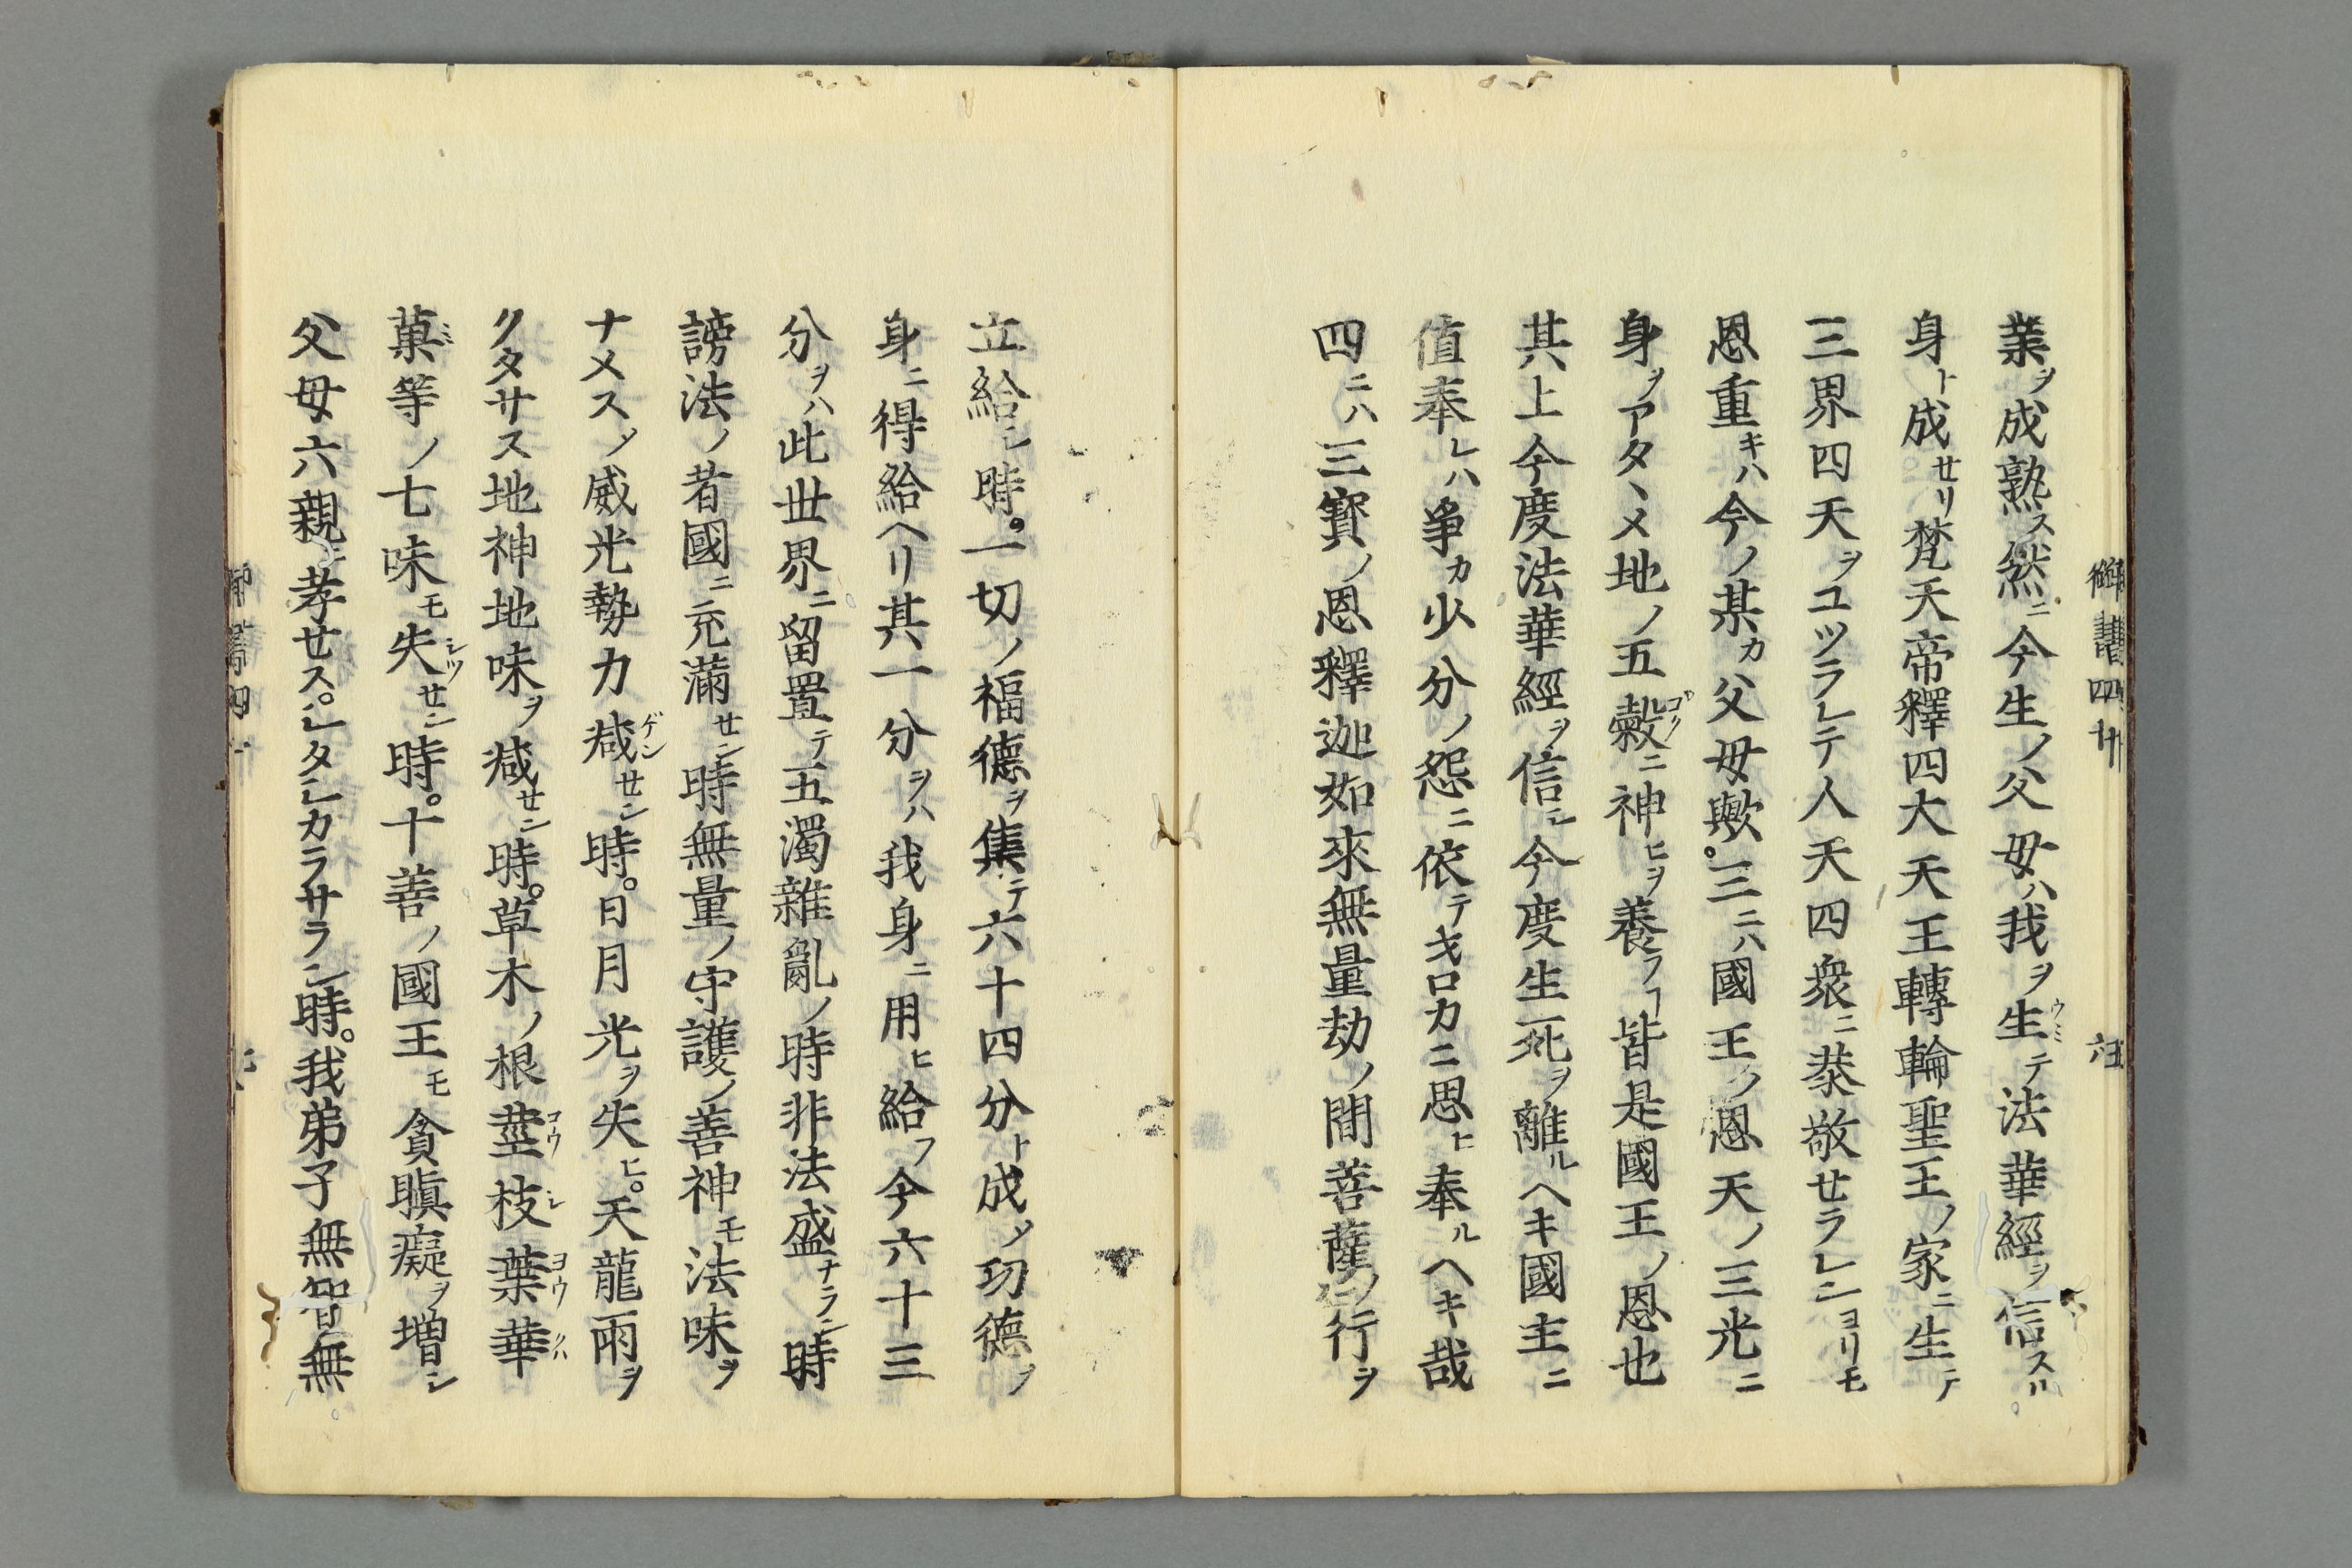 業ヲ成熟ス然ニ今生ノ父母ハ我ヲ生テ法華經ヲ信スル
身ト成セリ梵天帝釋四大天王轉輪聖王ノ家ニ生テ
三界四天ヲユツラレテ人天四衆ニ恭敬セラレンヨリモ
恩重キハ今ノ某カ父母歟。三ニハ國王ノ恩天ノ三光ニ
身ヲアタヽメ地ノ五穀ニ神ヒヲ養フヿ皆是國王ノ恩也
其上今度法華經ヲ信シ今度生死ヲ離ルヘキ國主ニ
値奉レハ爭カ少分ノ怨ニ依テヲロカニ思ヒ奉ルヘキ哉
四ニハ三寳ノ恩釋迦如來無量劫ノ間菩薩ノ行ヲ
立給シ時。一切ノ福德ヲ集テ六十四分ト成ノ功德ヲ
身ニ得給ヘリ其一分ヲハ我身ニ用ヒ給フ今六十三
分ヲハ此世界ニ留置テ五濁雜亂ノ時非法盛ナラン時
謗法ノ者國ニ充滿セン時無量ノ守護ノ善神モ法味ヲ
ナメスノ威光勢力減セン時。日月光ヲ失ヒ。天龍雨ヲ
クタサス地神地味ヲ減セン時。草木ノ根莖枝葉華
菓等ノ七味モ失セン時。十善ノ國王モ貪瞋癡ヲ增シ
父母六親ニ孝セス。シタシカラサラン時。我弟子無智無
御書四十